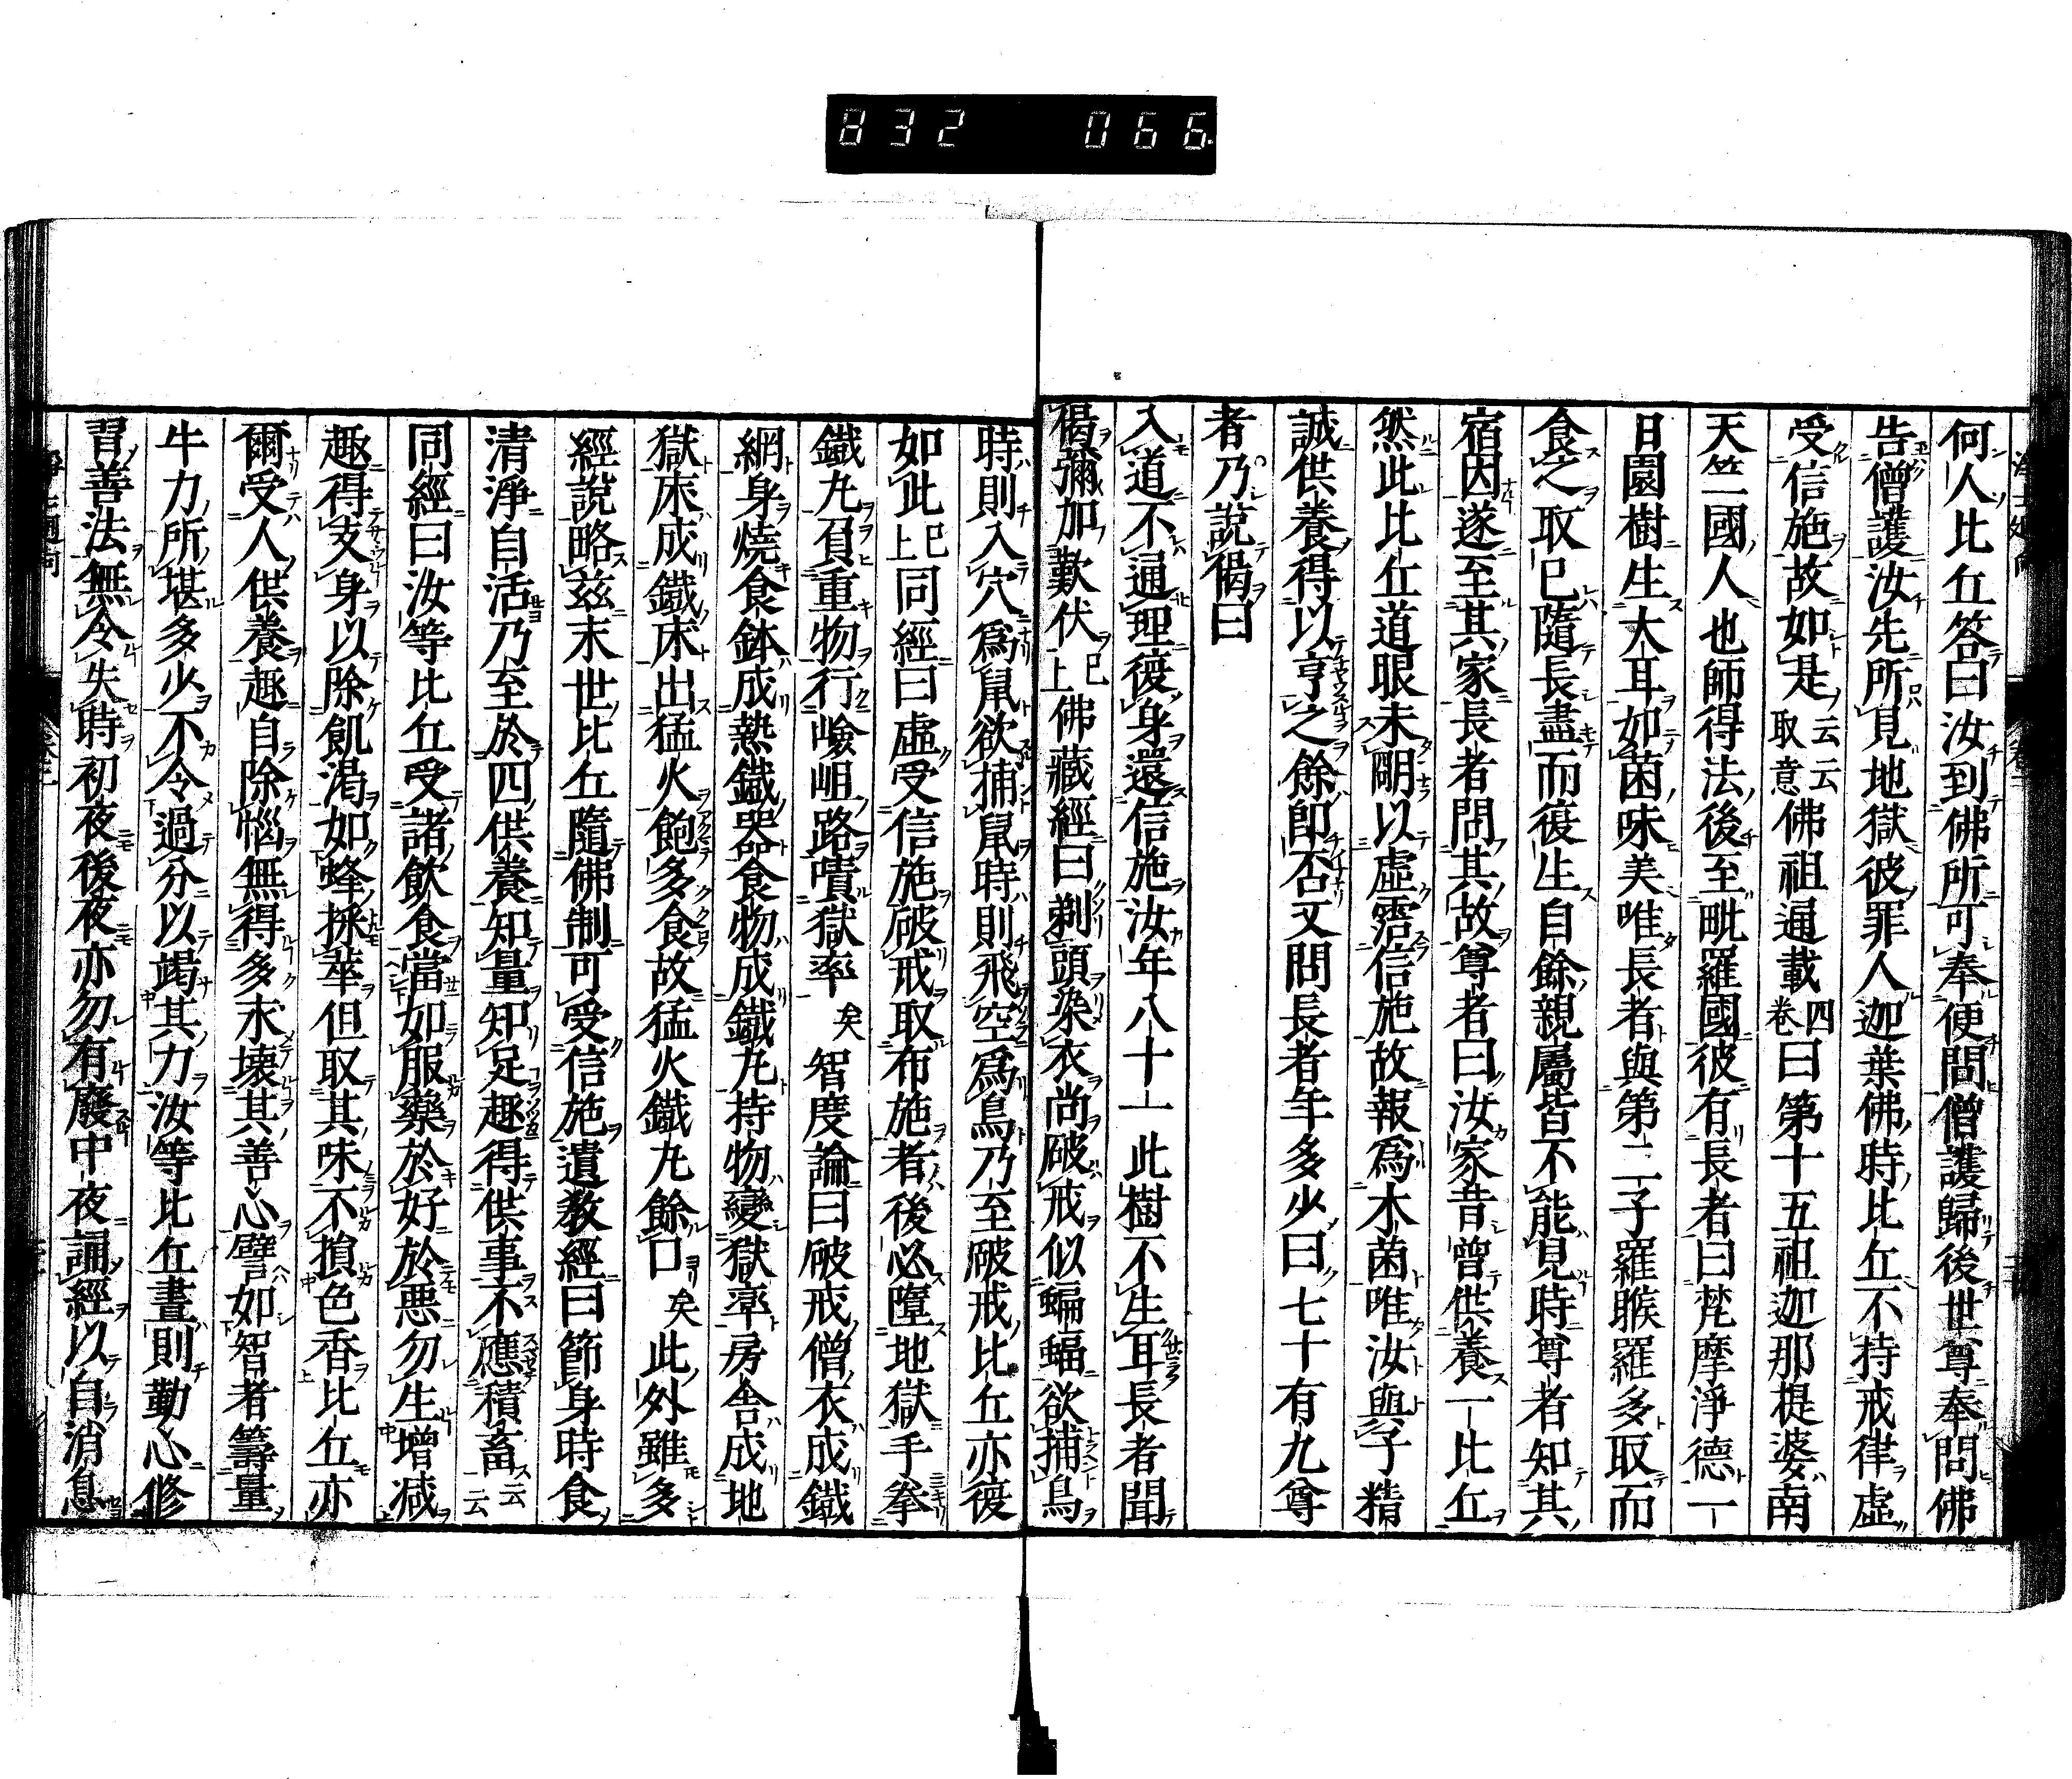 832 066
何人比丘答曰汝到佛所可奉便問僧護歸後世尊奉問佛
告僧護汝先所見地獄彼罪人迦葉佛時比丘不持戒律虛
受信施故如是云云取意佛祖通載四卷曰第十五祖迦那提婆南
天竺國人也師得法後至毗羅國彼有長者曰梵摩淨德一
日園樹生大耳如菌味美唯長者與第二子羅睺羅多取而
食之取已隨長盡而復生自餘親屬皆不能見時尊者知其
宿因遂至其家長者問其故尊者曰汝家昔曾供養一比丘
然此比丘道眼未明以虛霑信施故報爲木菌唯汝與子精
誠供養得以享之餘即否又問長者年多少曰七十有九尊
者乃說偈曰
入道不通理復身還信施汝年八十一此樹不生耳長者聞
偈彌加歎伏已上佛藏經曰剃頭染衣尚破戒似蝙蝠欲捕鳥
時則入穴爲鼠欲捕鼠時則飛空爲鳥乃至破戒比丘亦復
如此已上同經曰虛受信施破戒取布施者後必墮地獄手拳
鐵丸負重物行嶮岨路嘖獄率矣智度論曰破戒僧衣成鐵
網身燒食鉢成熱鐵器食物成鐵丸持物變獄率房舍成地
獄床成鐵床出猛火飽多食故猛火鐵丸餘口矣此外雖多
經說略茲末世比丘隨佛制可受信施遺教經曰節身時食
清淨自活乃至於四供養知量知足趣得供事不應積畜云云
同經曰汝等比丘受諸飲食當如服藥於好於惡勿生增減
趣得支身以除飢渴如蜂採華但取其味不損色香比丘亦
爾受人供養趣自除惱無得多求壞其善心譬如智者籌量
牛力所堪多少不令過分以竭其力汝等比丘晝則勤心修
習善法無令失時初夜後夜亦勿有廢中夜誦經以自消息